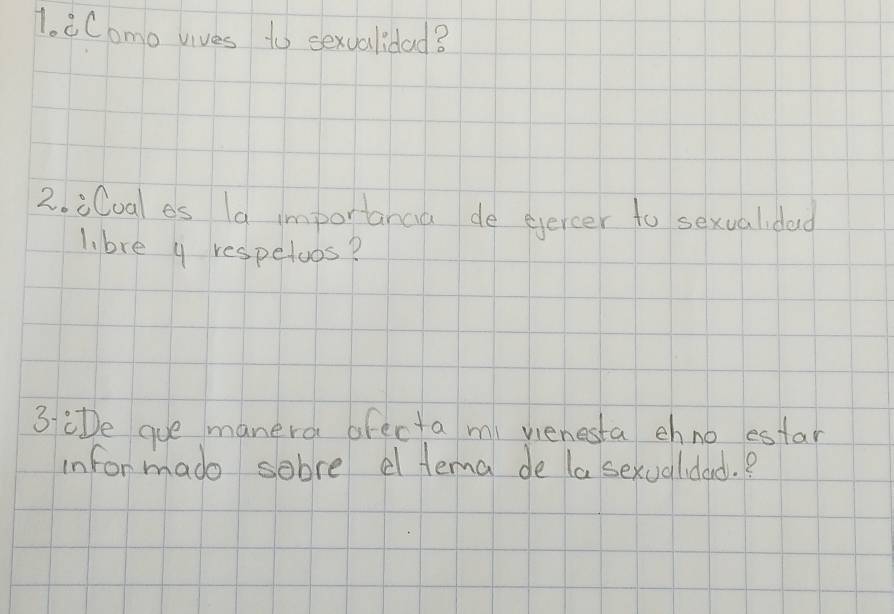 1.¿Como vives tu sexualidad?
2.¿Cual es la importancia de ejercer tu sexualidad
libre y respetuos?
3-¿De que manera afecta mi vienesta eh no estar
informado sobre el tema de la sexualidad.?